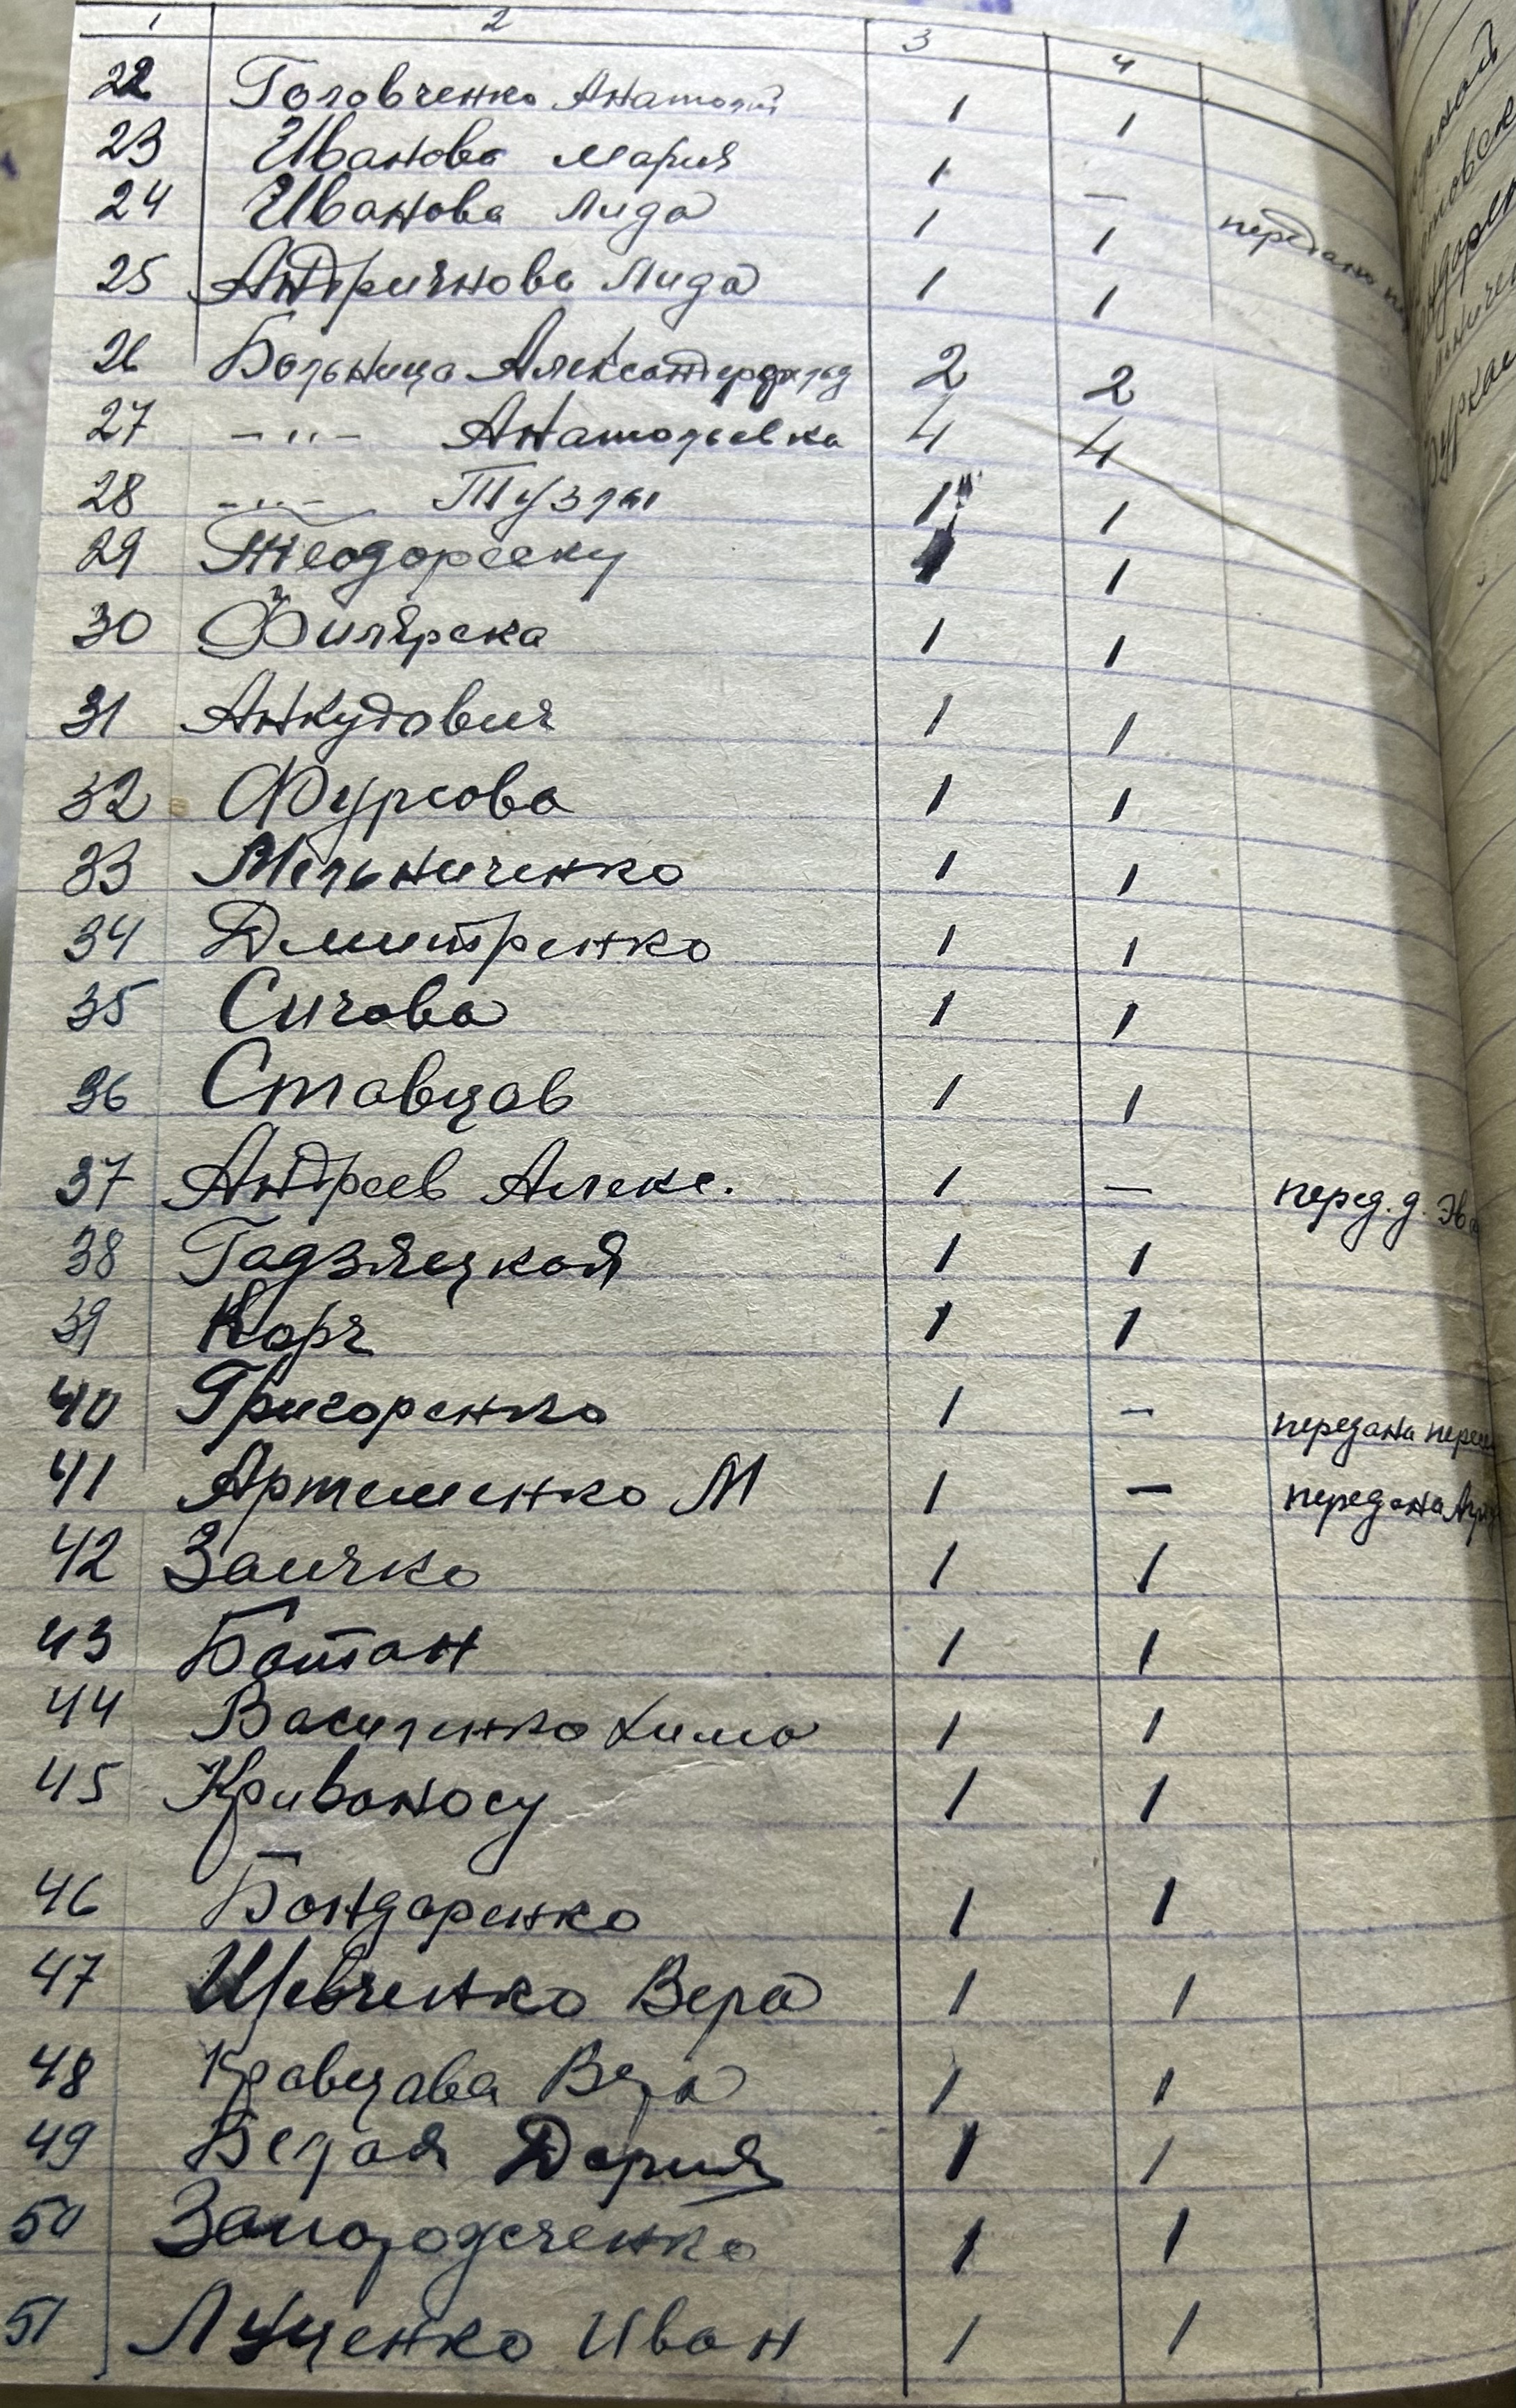 1 2 3 4
22 Головченко Анатолий 1 1
23 Иванова Мария 1 —
24 Иванова Лида 1 1 передана
25 Андриянова Лида 1 1
26 Больница Александерфельд 2 2
27 -"- Анатольевка 4 4
28 -"- Тузлы 1 1
29 Теодореску 1
30 1 1
31 Анкудович 1 1
32 Фурсова 1 1
33 Мельниченко 1 1
34 Дмитренко 1 1
35 Сичова 1 1
36 Ставцов 1 1
37 Андреев Алекс. 1 — перед. д.
38 Гадзяцкая 1 1
39 Корч 1 1
40 Григоренко 1 — передана
41 Артеменко М 1 — передана
42 Заичко 1 1
43 Ботан 1 1
44 Василенко Хима 1 1
45 Кривоносу 1 1
46 Бондаренко 1 1
47 Шевченко Вера 1 1
48 Кравцова Вера 1 1
49 Белая Дария 1 1
50 1 1
51 Луценко Иван 1 1